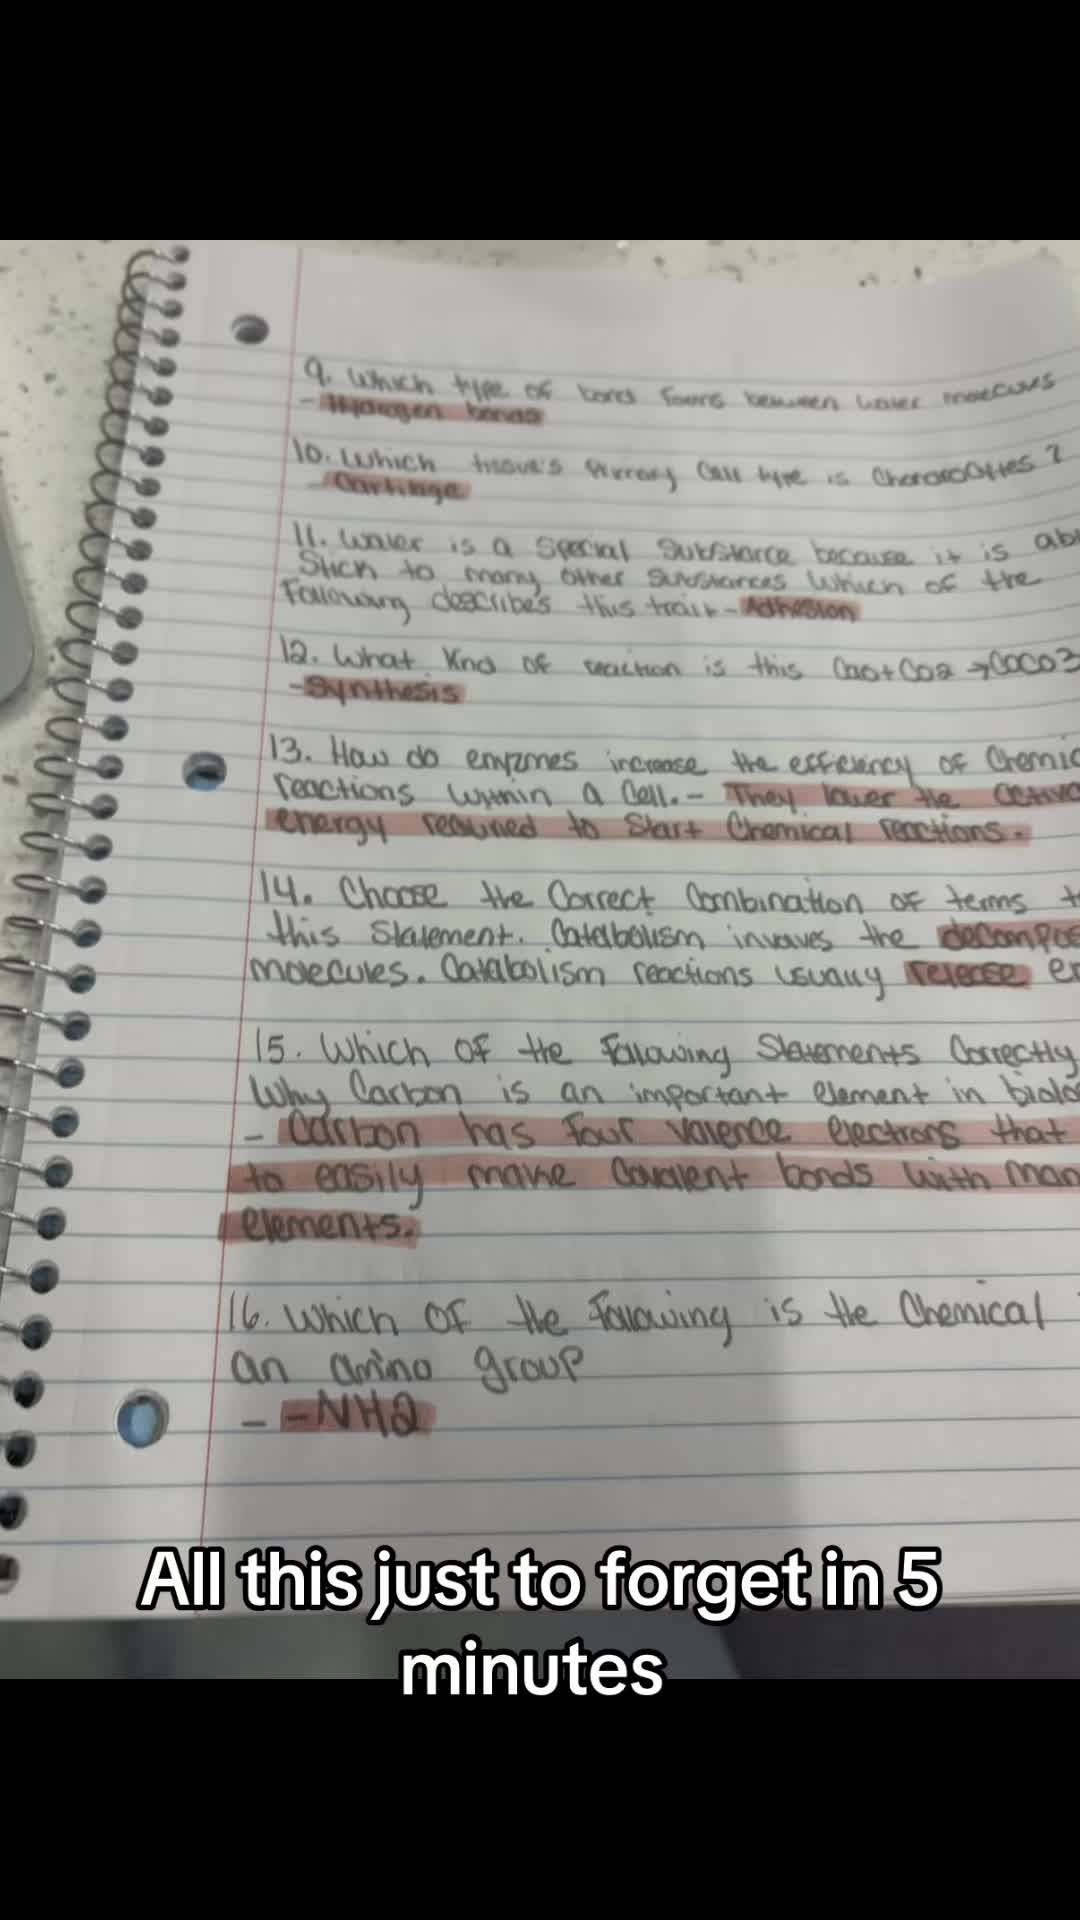 9. Which type of bond forms between water molecules
- Hydrogen bonds
10. Which tissue's primary Cell type is Chondrocytes?
- Cartilage
11. Water is a Special Substance because it is
Stick to many other Substances Which of the
Following describes this trait - Adhesion
12. What kind of reaction is this CaO+CO2 →CaCO3
- Synthesis
13. How do enzymes increase the efficiency of
reactions within a Cell. - They lower the
energy required to Start Chemical reactions.
14. Choose the Correct Combination of terms
this Statement. Catabolism involves the
molecules. Catabolism reactions usually release
15. Which Of the Following Statements Correctly
Why Carbon is an important element in
- Carbon has Four Valence electrons that
to easily make Covalent bonds with
elements.
16. Which Of the Following is the Chemical
an amino group
- -NH2
All this just to forget in 5
minutes